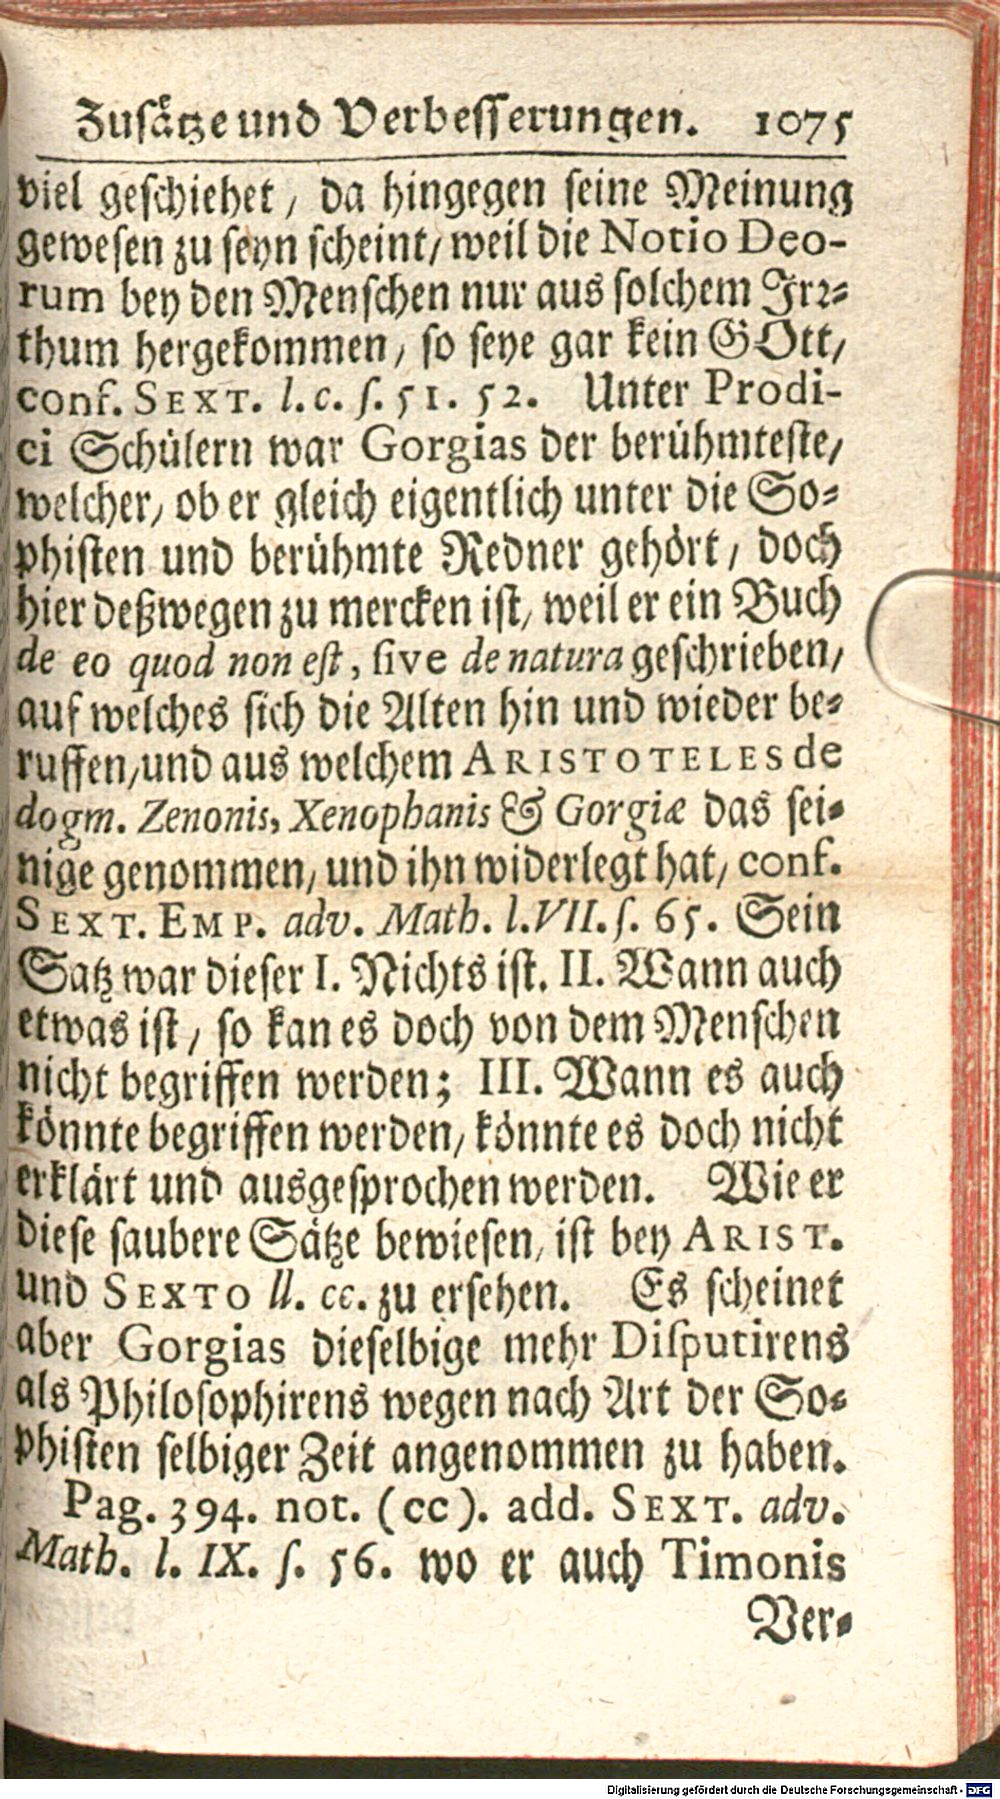 Zusätze und Verbesserungen. 1075
viel geschiehet, da hingegen seine Meinung
gewesen zu seyn scheint, weil die Notio Deo-
rum bey den Menschen nur aus solchem Irr-
thum hergekommen, so seye gar kein GOtt,
conf. SEXT. l. c. s. 51. 52. Unter Prodi-
ci Schülern war Gorgias der berühmteste,
welcher, ob er gleich eigentlich unter die So-
phisten und berühmte Redner gehört, doch
hier deßwegen zu mercken ist, weil er ein Buch
de eo quod non est, sive de natura geschrieben,
auf welches sich die Alten hin und wieder be-
ruffen, und aus welchem ARISTOTELES de
dogm. Zenonis, Xenophanis & Gorgiæ das sei-
nige genommen, und ihn widerlegt hat, conf.
SEXT. EMP. adv. Math. l. VII. s. 65. Sein
Satz war dieser I. Nichts ist. II. Wann auch
etwas ist, so kan es doch von dem Menschen
nicht begriffen werden; III. Wann es auch
könnte begriffen werden, könnte es doch nicht
erklärt und ausgesprochen werden. Wie er
diese saubere Sätze bewiesen, ist bey ARIST.
und SEXTO ll. cc. zu ersehen. Es scheinet
aber Gorgias dieselbige mehr Disputirens
als Philosophirens wegen nach Art der So-
phisten selbiger Zeit angenommen zu haben.
Pag. 394. not. (cc). add. SEXT. adv.
Math. l. IX. s. 56. wo er auch Timonis
Ver-
Digitalisierung gefördert durch die Deutsche Forschungsgemeinschaft - DFG